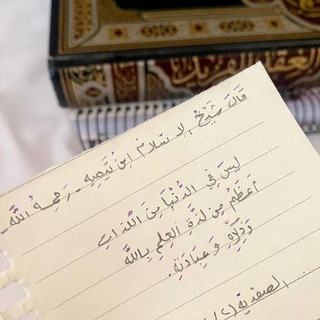 العقد الفريد
قَالَ شَيْخُ الإسلامُ ابن تَيْمِيه - رَحِمهُ اللَّه -
لَيسَ فِي الدُّنْيَا مِنَ اللَّذاتِ
أعظَمُ مِن لذَّةِ العِلمِ بِاللَّه
وَذِكرِهِ وَعِبَادَتِهِ
الصفدية